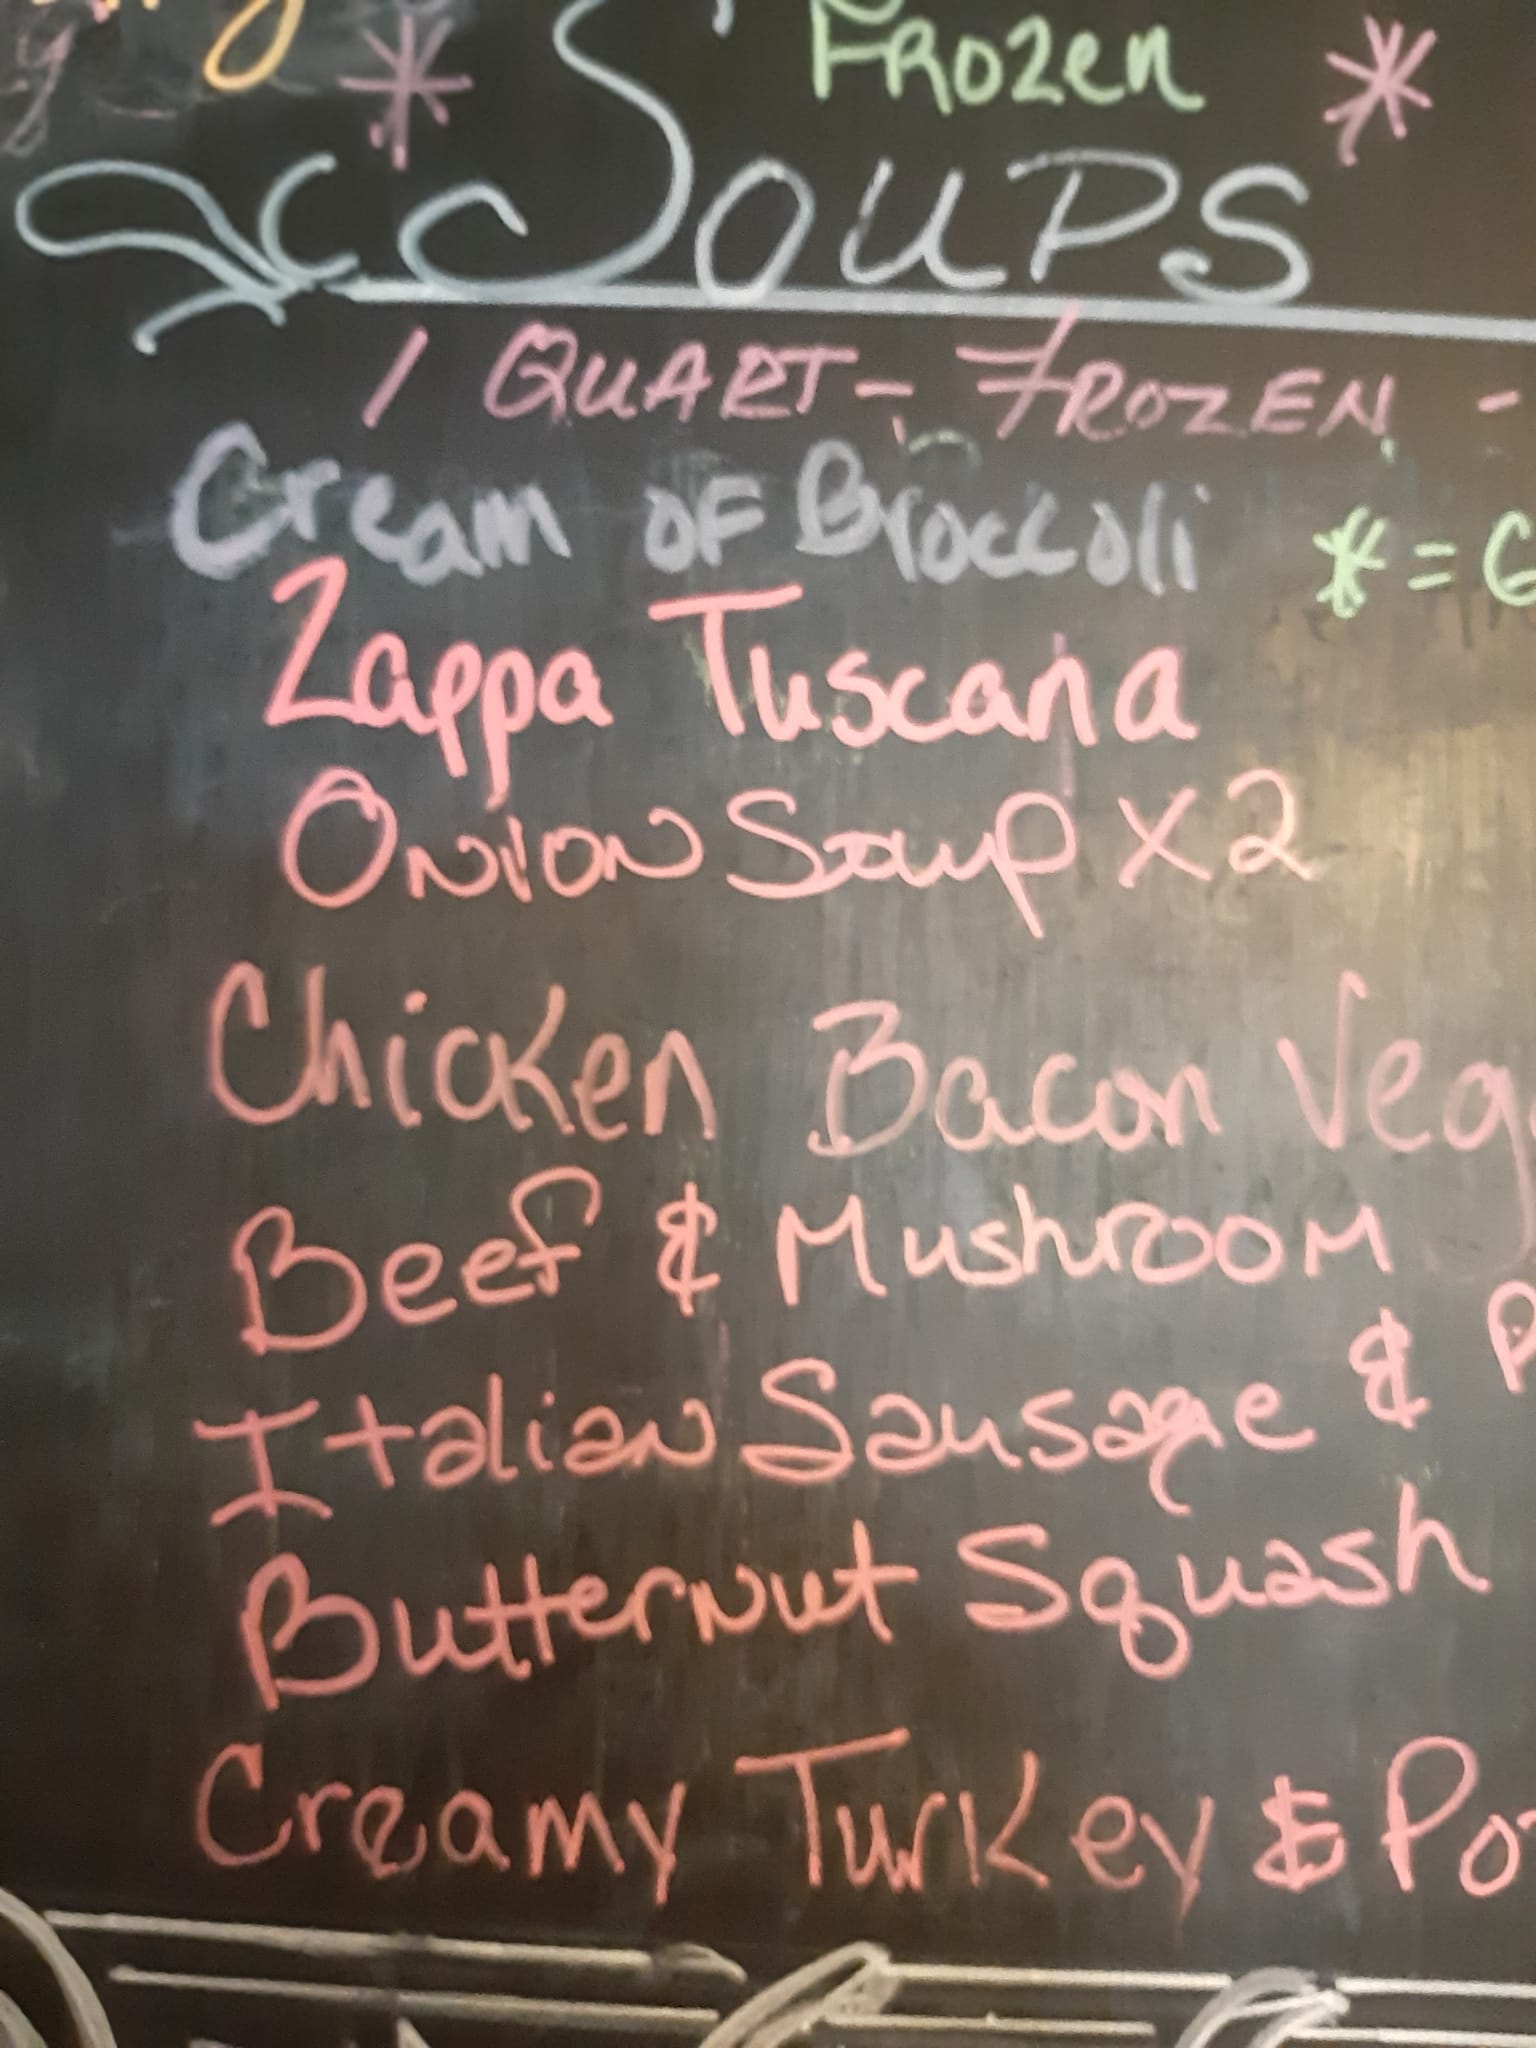 * Frozen *
Soups
1 QUART - FROZEN -
Cream of Broccoli * = G
Zappa Tuscana
Onion Soup x 2
Chicken Bacon Veg
Beef & Mushroom
Italian Sausage & P
Butternut Squash
Creamy Turkey & Pot